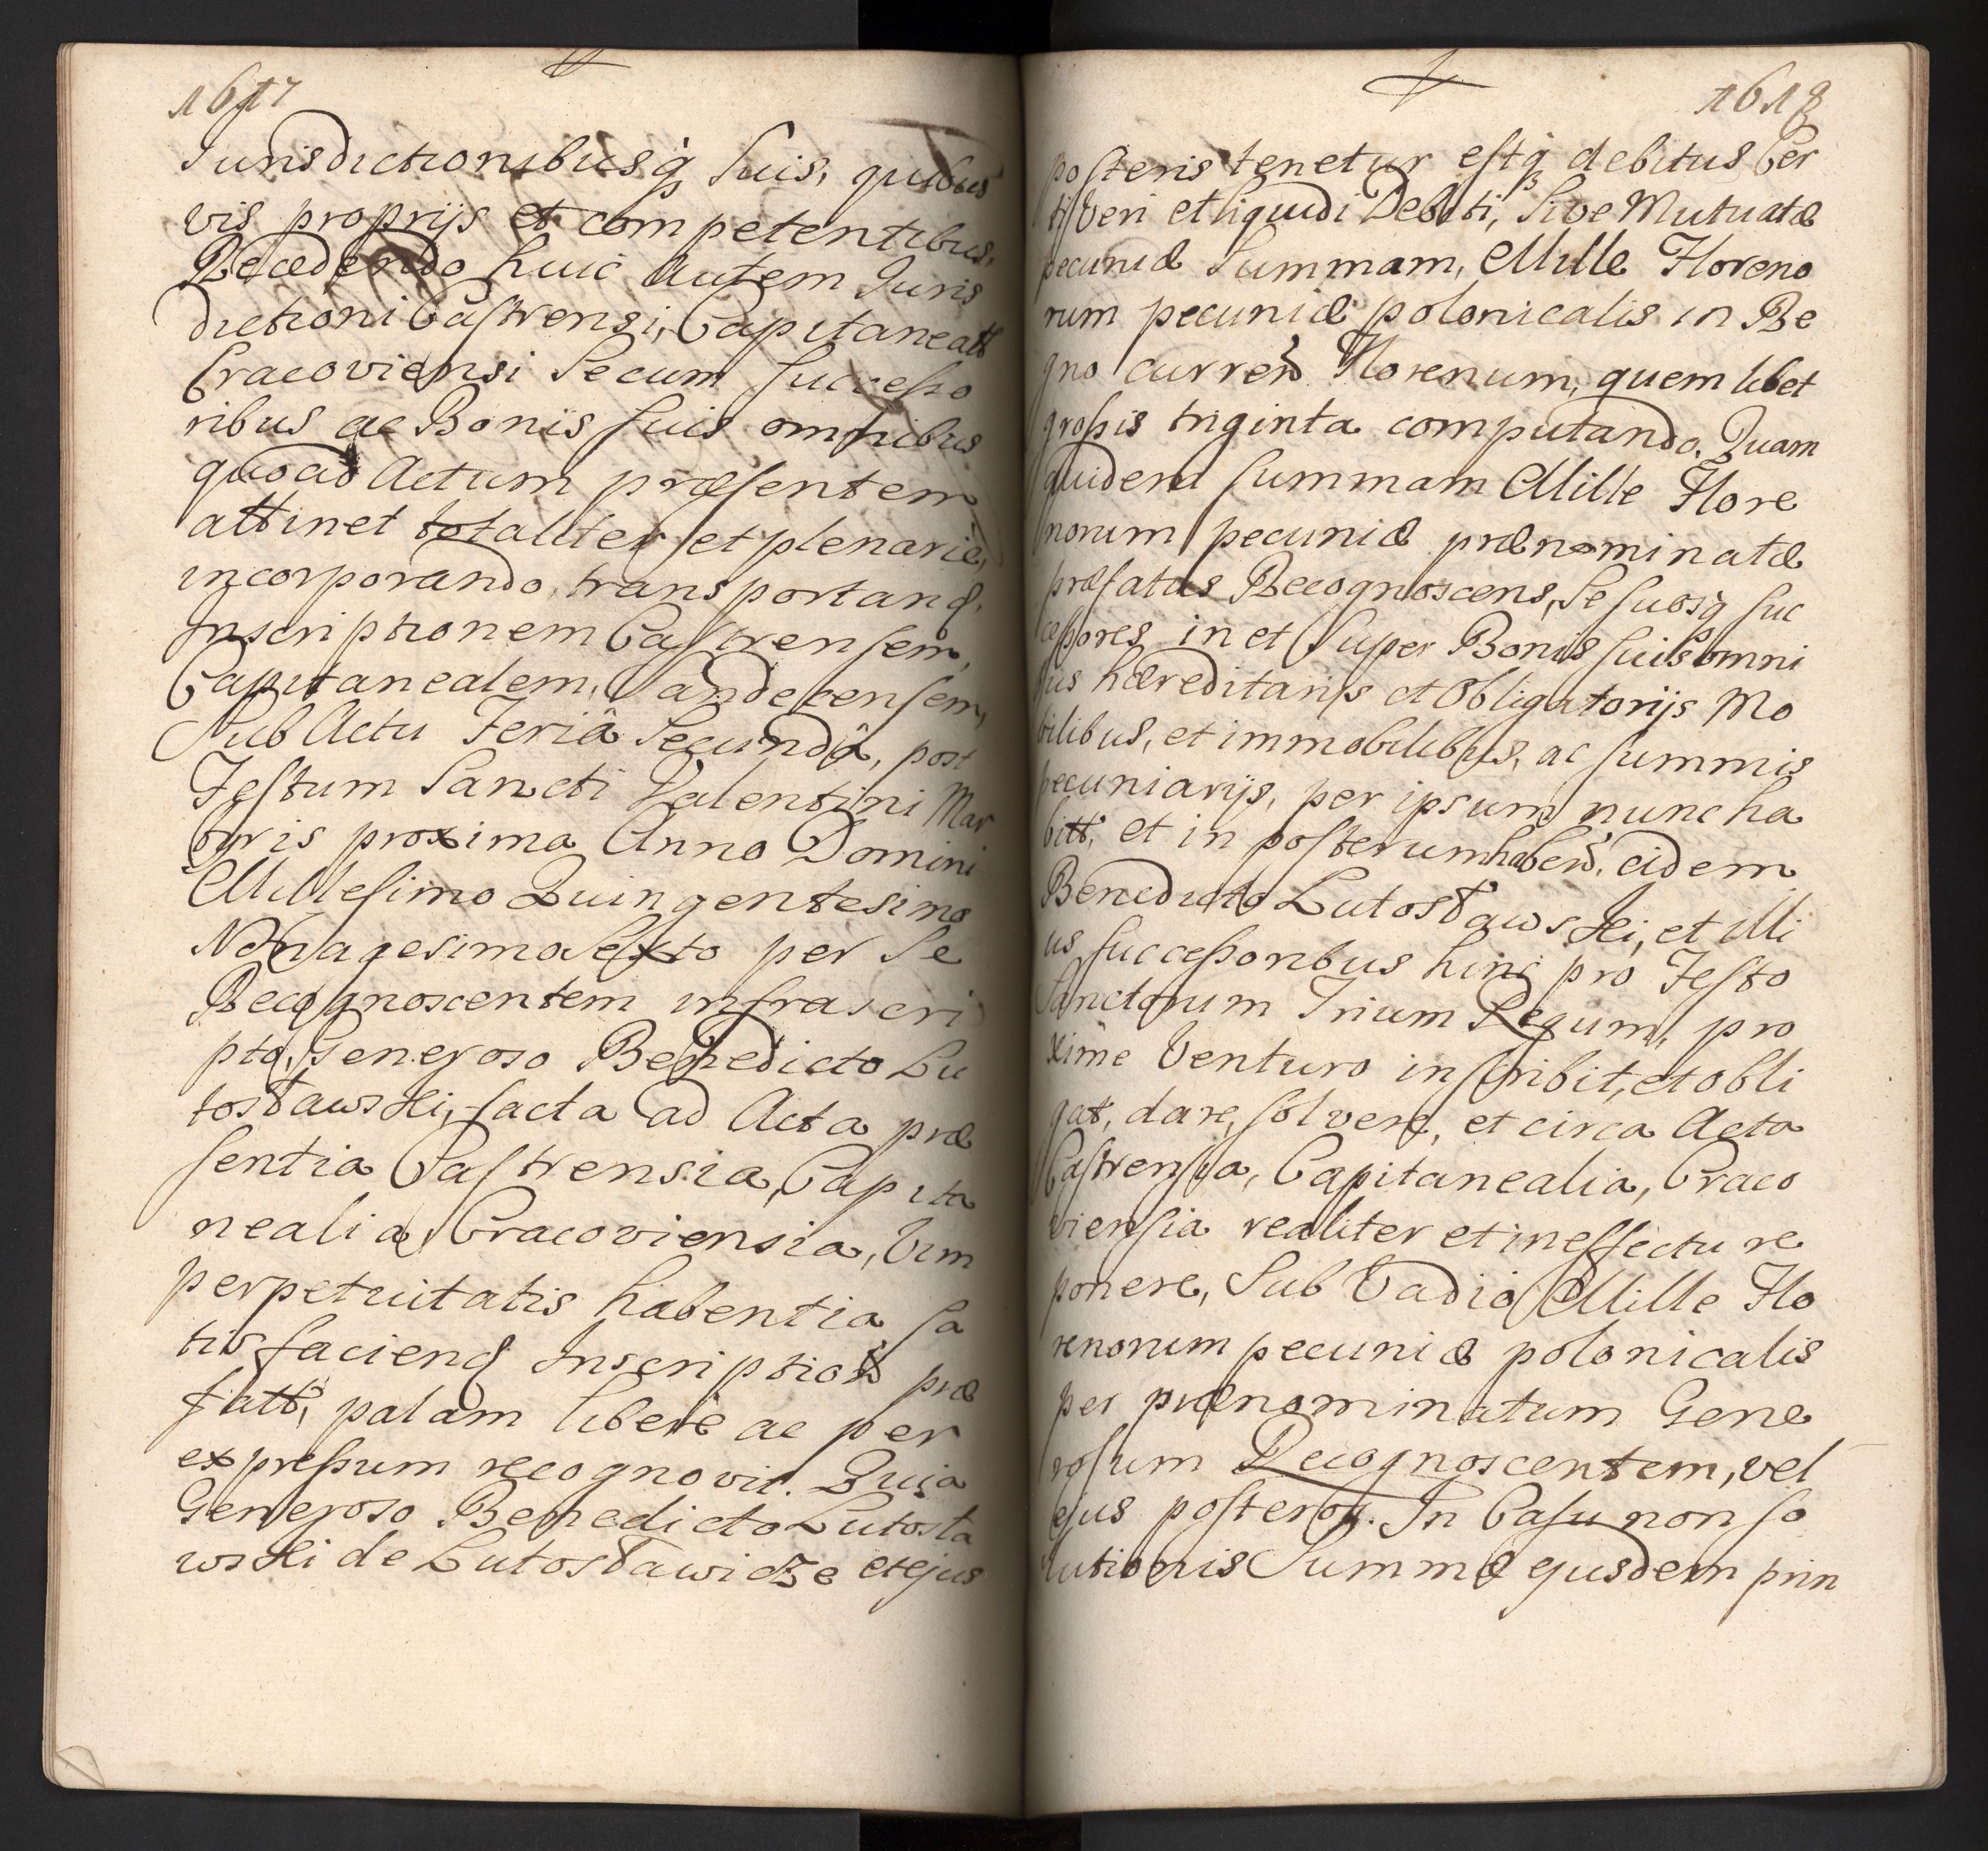 1617
Jurisdictionibusq₃ Suis, quibus
vis proprijs et competentibus,
Recedendo huic autem Juris
dictioni Castrensi, Capitaneatt
Cracoviensi Secum Successo
ribus ac Bonis suis omnibus
quoad Actum præsentem
attinet totaliter et plenarie,
incorporando, transportand.
Inscriptionem Castrensem,
Capitanealem, Sandecensem,
Sub Actu Feriâ Secundâ, post
Festum Sancti Valentini Mar
tyris proxima Anno Domini
Millesimo Quingentesimo
Nonagesimo Sexto per Se
Recognoscentem infrascri
pto, Generoso Benedicto Lu
tosławski, facta ad Acta præ
sentia Castrensia, Capita
nealia, Cracoviensia, Vim
perpetuitatis habentia sa
tisfaciend Inscription præ
fatt, palam libere ac per
expressum recognovit. Quia
Generoso Benedicto Lutosła
wski de Lutosławicze et ejus
1618
posteris tenetur estq₃ debitus Cer
ti Veri et liquidi Debiti, Sive Mutuatæ
pecuniæ Summam, Mille Floreno
rum pecuniæ polonicalis in Re
gno curren Florenum, quem libet
grossis triginta computando. Quam
quidem summam Mille Flore
norum pecuniæ prænominatæ
præfatus Recognoscens, Se suosq₃ suc
cessores in et Super Bonis suis omni
bus hæreditarijs et Obligatorijs Mo
bilibus, et immobilibus, ac summis
pecuniarijs, per ipsum nunc ha
bitt, et in posterum haben, eidem
Benedicto Lutosławski, et illi
us successoribus hinc pro Festo
Sanctorum Trium Regum, pro
xime Venturo inscribit, et obli
gat, dare, solvere, et circa Acta
Castrensia, Capitanealia, Craco
viensia realiter et in effectu re
ponere, Sub Vadio Mille Flo
renorum pecuniæ polonicalis
per prænominatum Gene
rosum Recognoscentem, vel
ejus posteros. In Casu non so
lutionis Summæ ejusdem prin